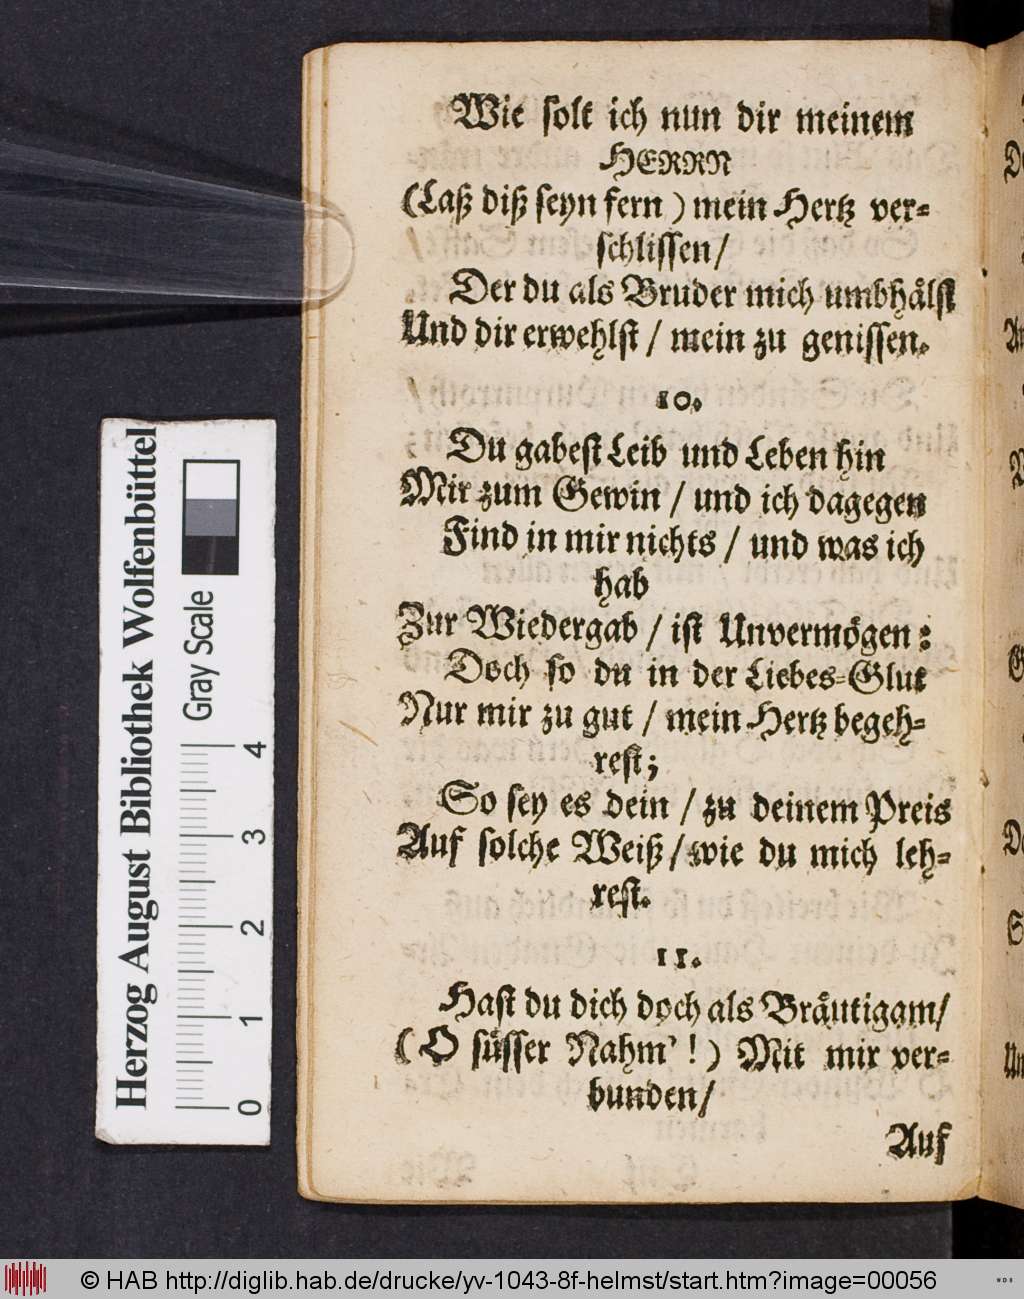 Wie solt ich nun dir meinem
HERRN
(Laß diß seyn fern) mein Hertz ver-
schlissen/
Der du als Bruder mich umbhålst
Und dir erwehlst / mein zu genissen.
10.
Du gabest Leib und Leben hin
Mir zum Gewin / und ich dagegen
Find in mir nichts / und was ich
hab
Zur Wiedergab / ist Unvermögen:
Doch so du in der Liebes-Glut
Nur mir zu gut / mein Hertz begeh-
rest;
So sey es dein / zu deinem Preis
Auf solche Weiß / wie du mich leh-
rest.
11.
Hast du dich doch als Bräutigam/
(O süsser Nahm'!) Mit mir ver-
bunden/
Auf
Herzog August Bibliothek Wolfenbüttel
Gray Scale
0 1 2 3 4
© HAB http://diglib.hab.de/drucke/yv-1043-8f-helmst/start.htm?image=00056
WDB